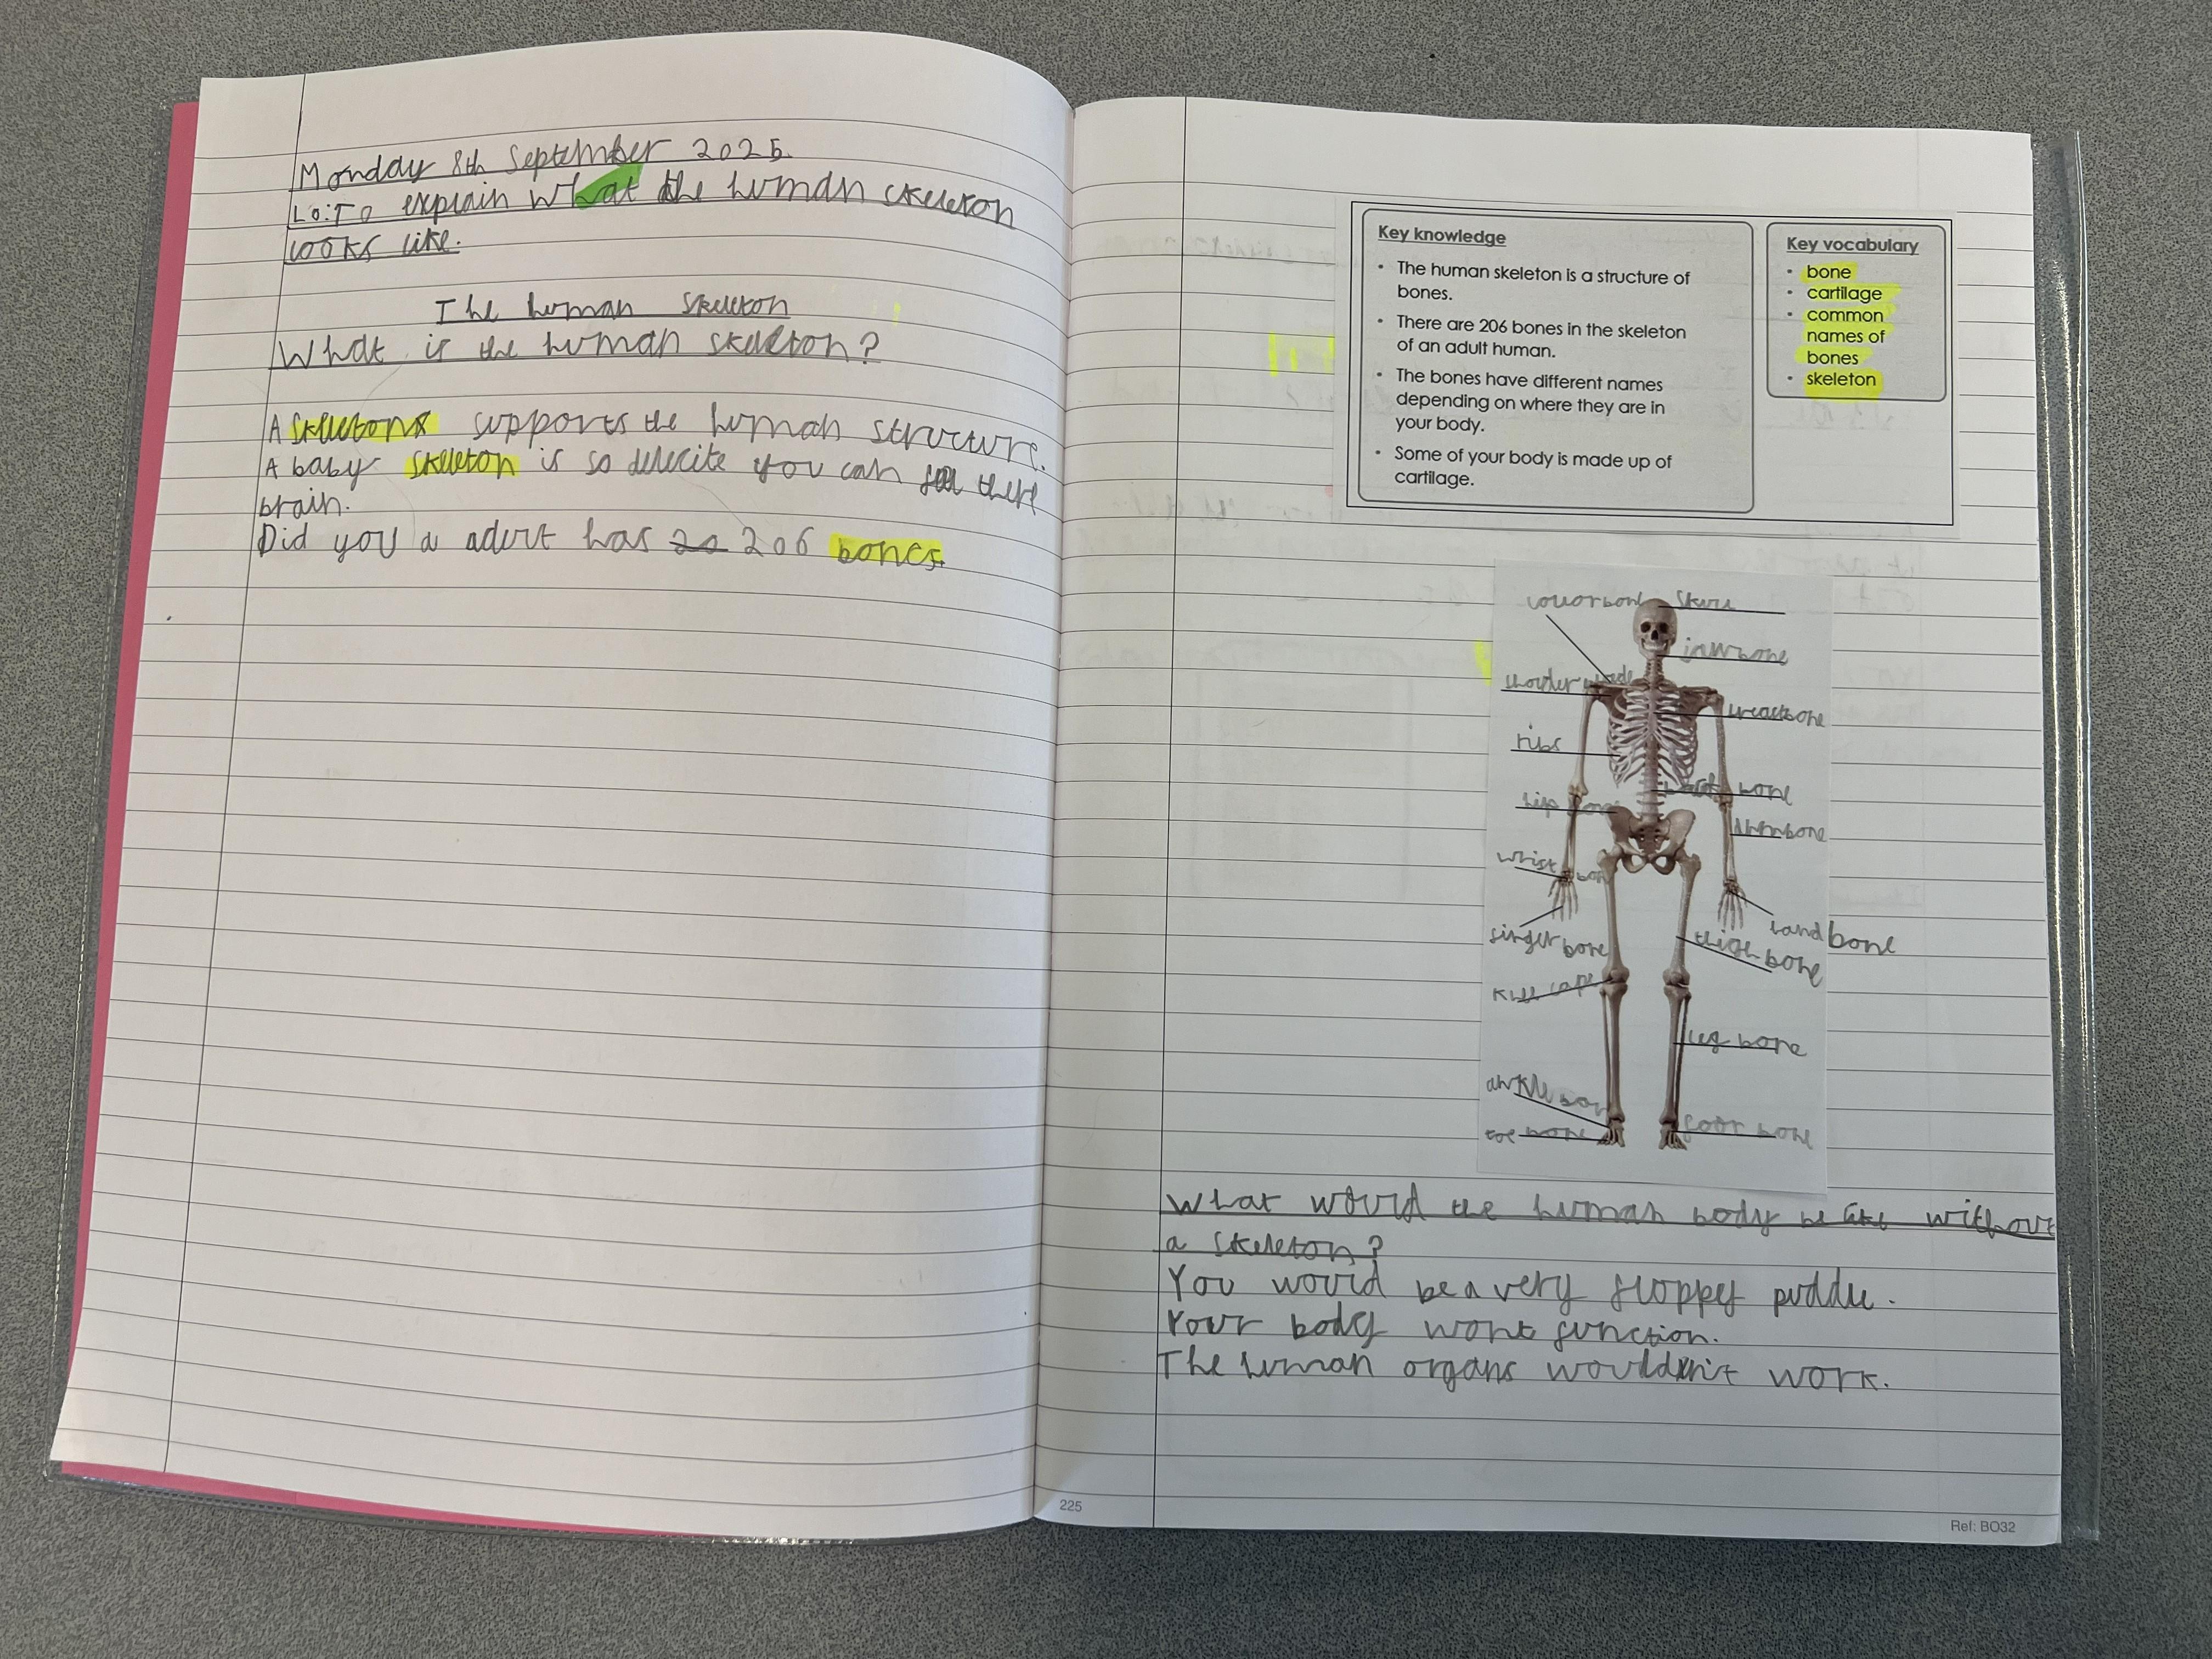 Monday 8th September 2025.
Lo: To explain what the human skeleton
looks like.
The human skeleton
What is the human skeleton?
A skeletons supports the human structure.
A baby skeleton is so delecite you can see there
brain.
Did you a adult has 20 206 bones.
Key knowledge
• The human skeleton is a structure of
bones.
• There are 206 bones in the skeleton
of an adult human.
• The bones have different names
depending on where they are in
your body.
• Some of your body is made up of
cartilage.
Key vocabulary
• bone
• cartilage
• common
names of
bones
• skeleton
collorbone
skull
jawbone
shoulder blade
breastbone
ribs
back bone
hip bone
Armbone
wrist bone
finger bone
hand bone
thigh bone
leg bone
ankle bon
toe bone
foot bone
What would the human body be like without
a skeleton?
You would be a very floppy puddle.
Your body wont function.
The human organs wouldn't work.
225
Ref: BO32